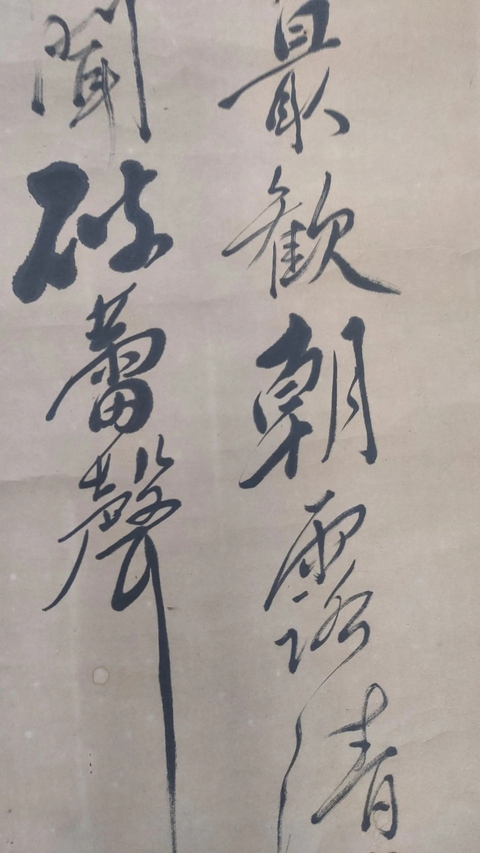 最歓朝露清
聞破蕾聲